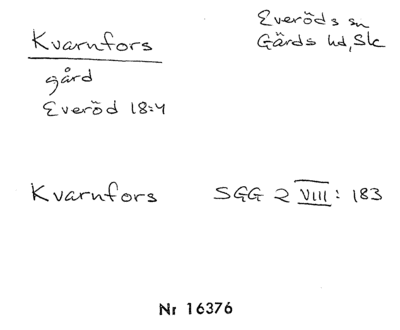 Kvarnfors
gård
Everöd 18:4
Everöds sn
Gärds hd, Sk
Kvarnfors SGG 2 VIII: 183
Nr 16376